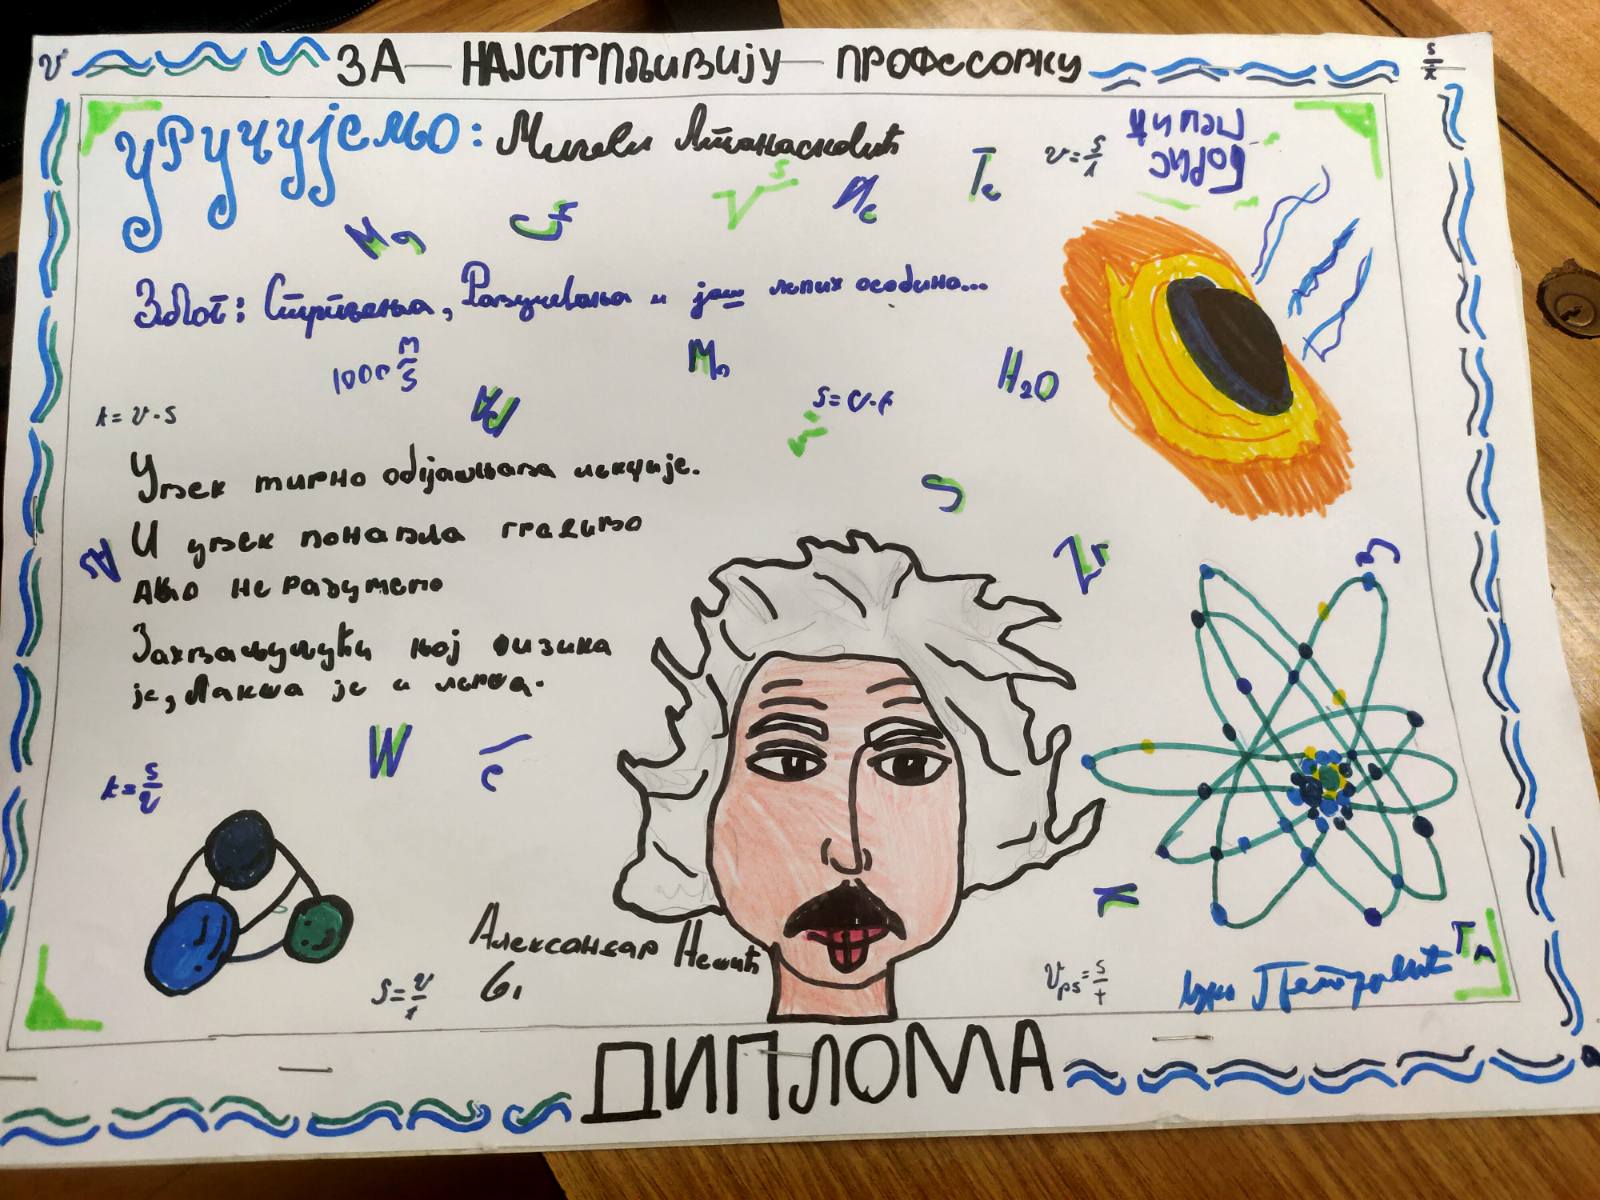 v
ЗА НАЈСТРПЉИВИЈУ ПРОФЕССОРКУ
s/t
УРУЧУЈЕМО: Милеви Атанасковић
v = s/t
БОРИС
Tc
Због: Стрпљења, Разумевања и још лепих особина...
1000 m/s
H₂O
t = v · s
s = v · t
Увек мирно објашњава лекције.
S
И увек понавља градиво
ако не разумемо
Zr
Захваљујући њој физика
је, лакша је и лепша.
W
t = s/v
K
Александар Нешић
6₁
s = v/t
Vps = s/t
Петровић
Tm
ДИПЛОМА